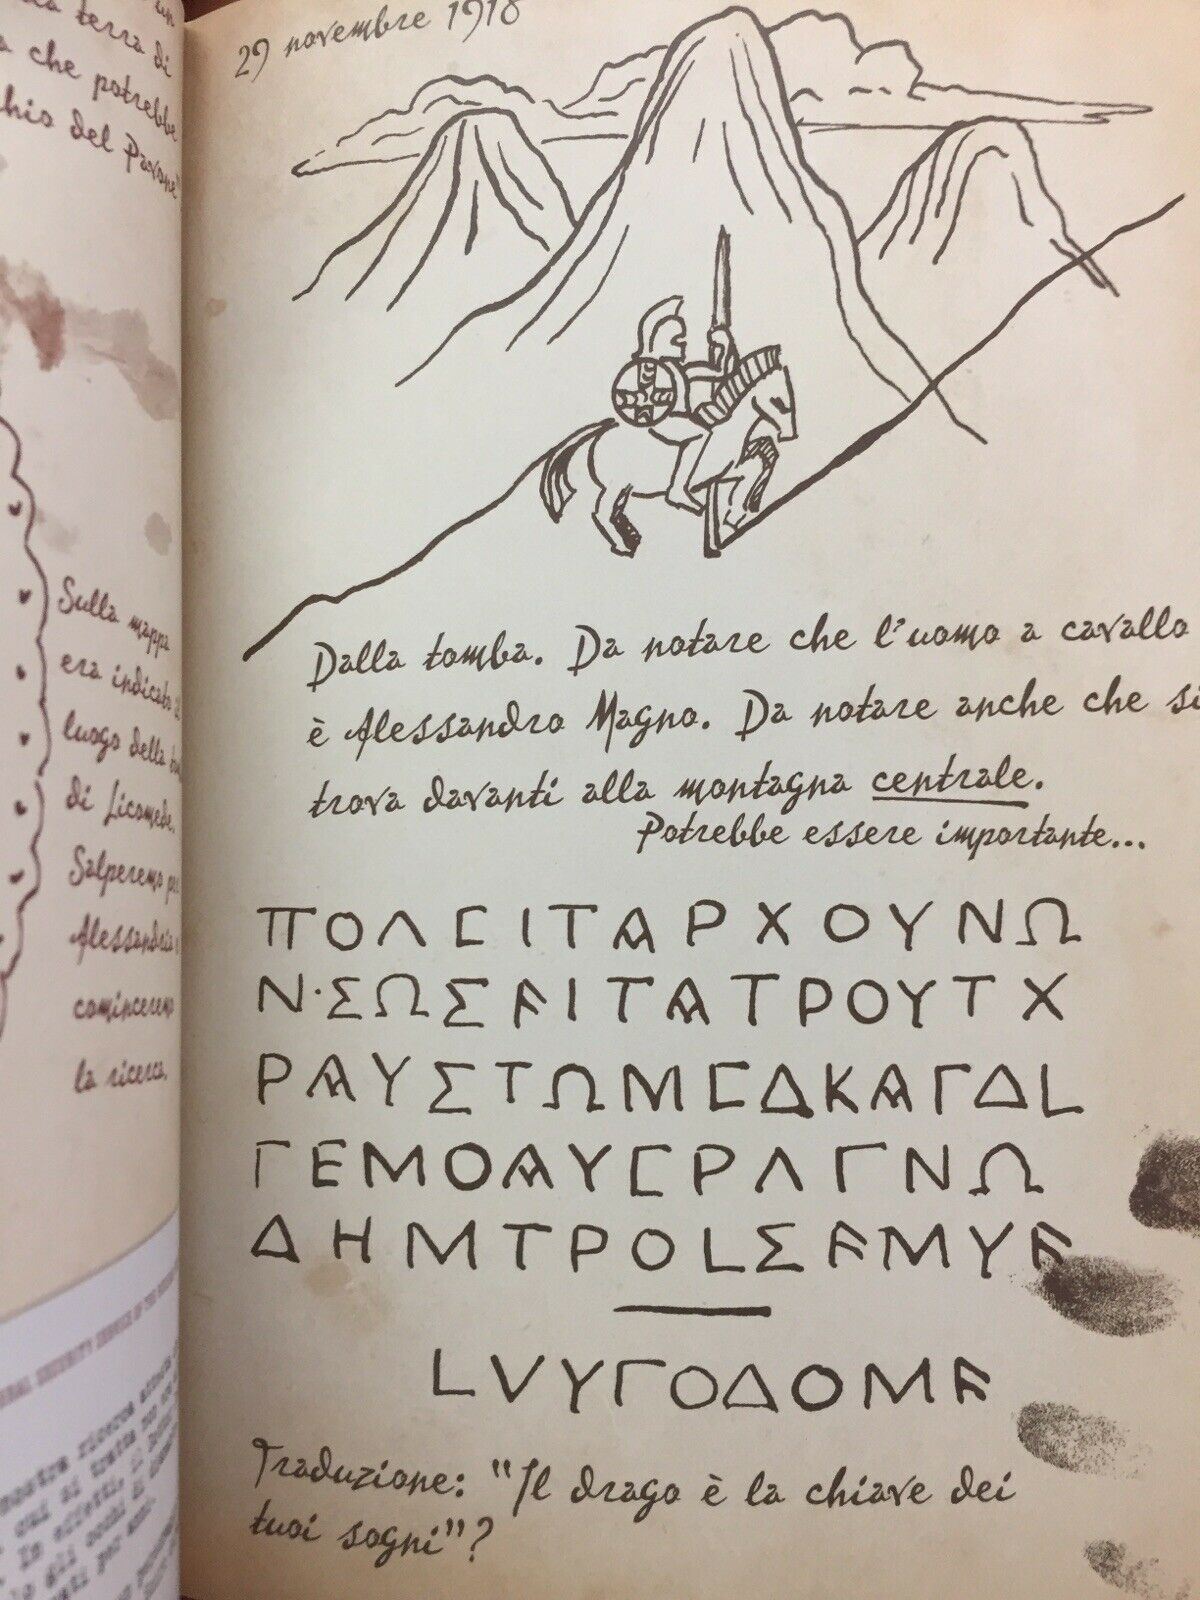 terra di
che potrebbe
del Pavone"
Sulla mappa
era indicato
luogo della
di Licomede.
Salperemo
Alessandria
cominceremo
la ricerca.
29 novembre 1918
Dalla tomba. Da notare che l'uomo a cavallo
è Alessandro Magno. Da notare anche che si
trova davanti alla montagna centrale.
Potrebbe essere importante...
ΠΟΛΕΙΤΑΡΧΟΥΝΩ
Ν·ΣΩΣΑΙΤΑΤΡΟΥΤΧ
ΡΑΥΣΤΩΜΕΔΚΑΓΔL
ΓΕΜΟΑΥΕΡΛΓΝΩ
ΔΗΜΤΡΟLΣΑΜΥΑ
LVΥΓΟΔΟΜΑ
Traduzione: "Il drago è la chiave dei
tuoi sogni"?